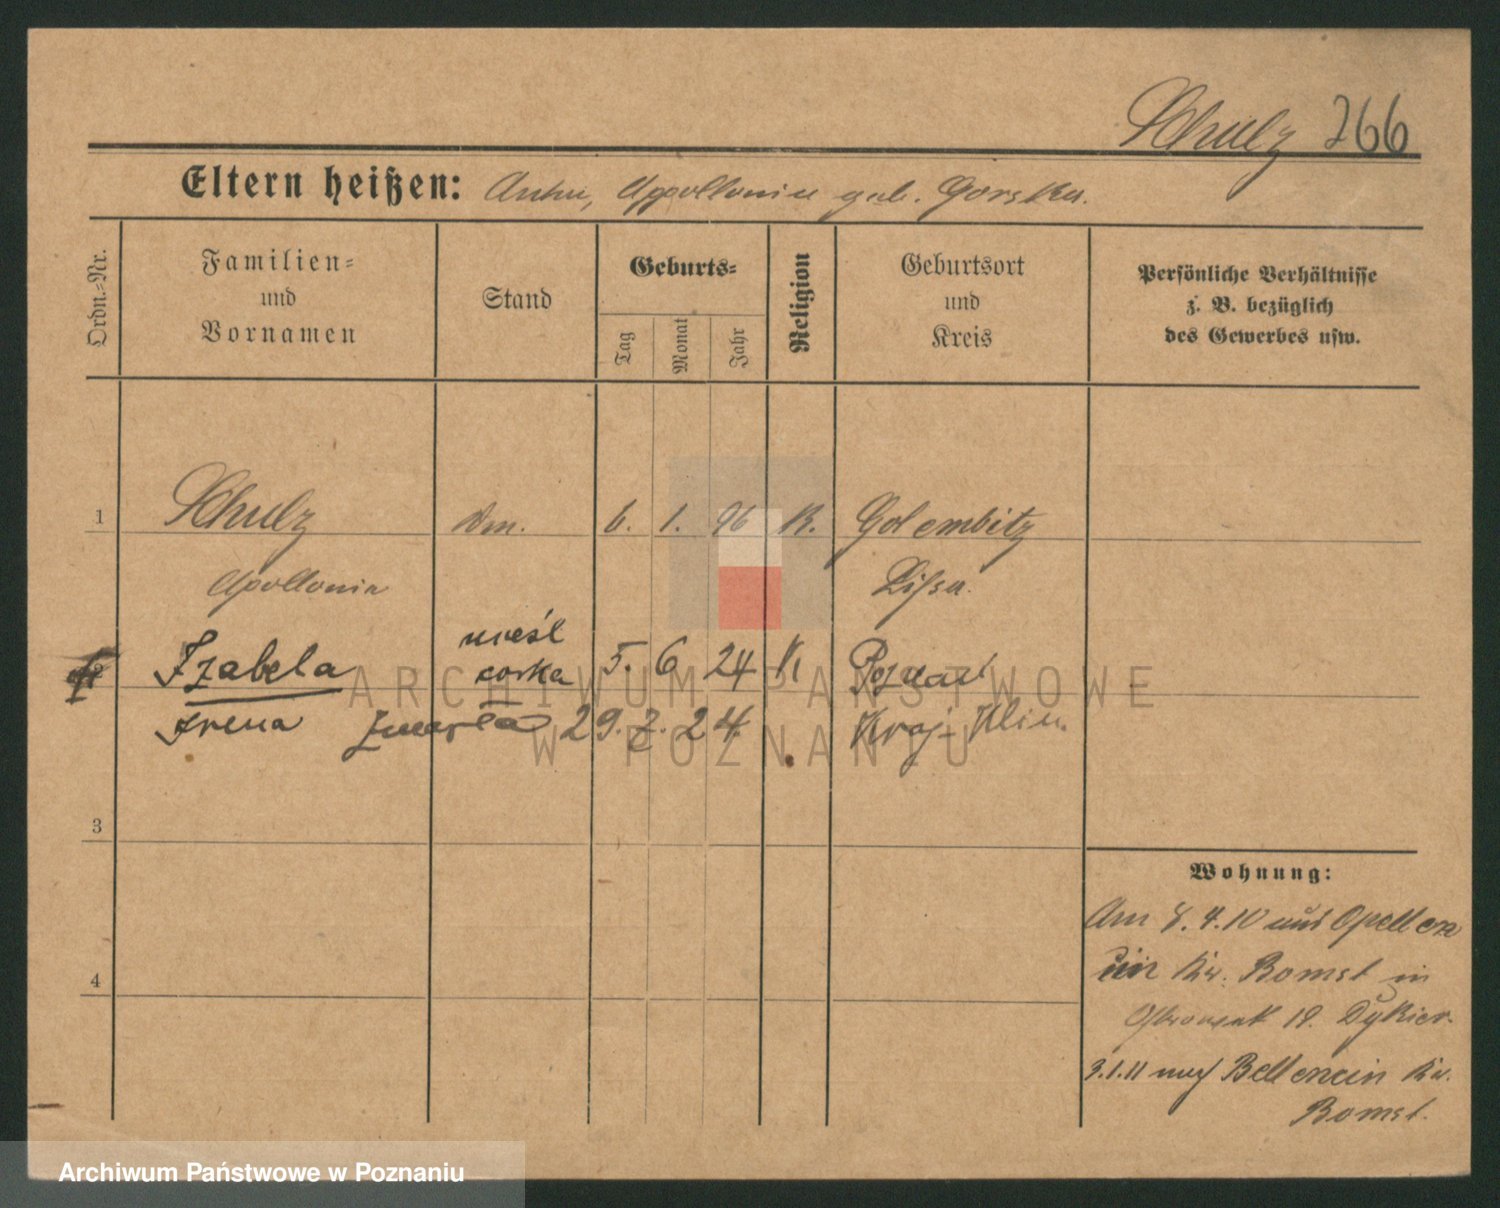 Schulz 266
Eltern heißen: Anton, Appollonia geb. Gorska.
Ordn.=Nr.
Familien=
und
Vornamen
Stand
Geburts=
Tag
Monat
Jahr
Religion
Geburtsort
und
Kreis
Persönliche Verhältnisse
z. B. bezüglich
des Gewerbes usw.
1 Schulz 6. 1. 96 K. Golembitz
Apollonia Lissa.
2 Izabela nieśl córka 5. 6. 24 K Poznań
Irena Zmarła 29. 7. 24.
3
4
Wohnung:
Am 8.4.10 aus
Kr. Bomst in
18.
3.1.11 nach Kr.
Bomst.
ARCHIWUM PAŃSTWOWE
W POZNANIU
Archiwum Państwowe w Poznaniu